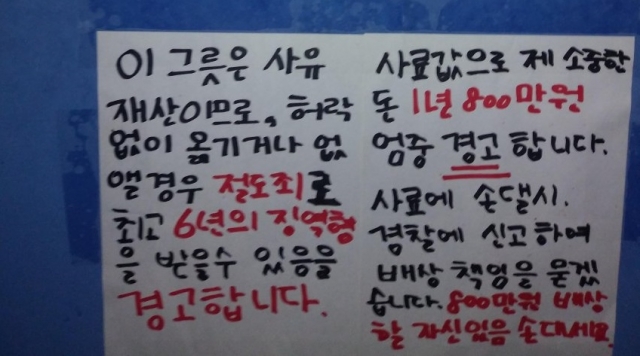 이 그릇은 사유
재산이므로, 허락
없이 옮기거나 없
앨 경우 절도죄로
최고 6년의 징역형
을 받을수 있음을
경고합니다.
사료값으로 제 소중한
돈 1년 800만원
엄중 경고 합니다.
사료에 손댈시.
경찰에 신고하여
배상 책임을 묻겠
습니다. 800만원 배상
할 자신있음 손대세요.